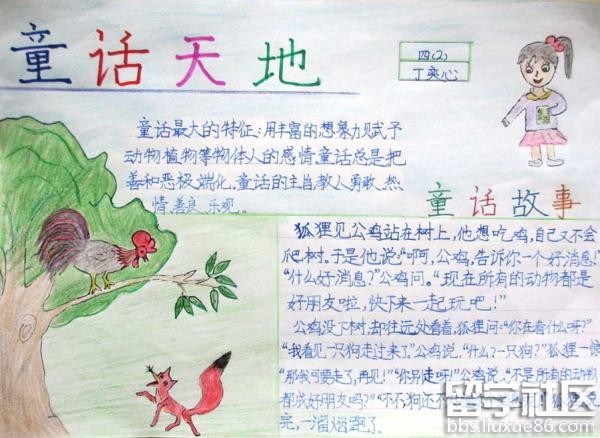 童话天地
四(2)
丁奕心
童话最大的特征:用丰富的想象力赋予
动物植物等物体人的感情,童话总是把
善和恶极端化,童话的主旨教人勇敢、热
情、善良、乐观。
童话故事
狐狸见公鸡站在树上,他想吃鸡,自己又不会
爬树。于是他说:“啊,公鸡,告诉你一个好消息!”
“什么好消息?”公鸡问。“现在所有的动物都是
好朋友啦,快下来一起玩吧!”
公鸡没下树,却往远处看着,狐狸问:“你在看什么呀?”
“我看见一只狗走过来了。”公鸡说。“什么?一只狗?”狐狸一惊
“那我可要走了,再见!”“你别走呀!”公鸡说,“不是所有的动物
都成好朋友吗?”“不,不,狗还不
完,一溜烟跑了。
留学社区
bbs.liuxue86.com